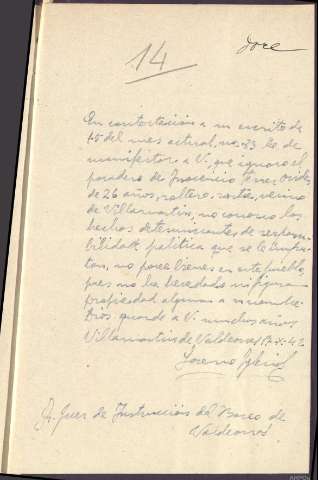 14
doce
En contestación a su escrito de
15 del mes actual, no. 83 he de
manifestar a V. que ignoro el
paradero de Inocencio
de 26 años, soltero, sastre, vecino
de Villamartin, no conozco los
hechos determinantes de responsa
bilidad política que se le impu
tan, no posee bienes en este pueblo,
pues no ha heredado ni figura
propiedad alguna a su nombre.
Dios guarde a V. muchos años
Villamartin de Valdeorras 17-X-42
Lorenzo
Sr. Juez de Instrucción del Barco de
Valdeorras